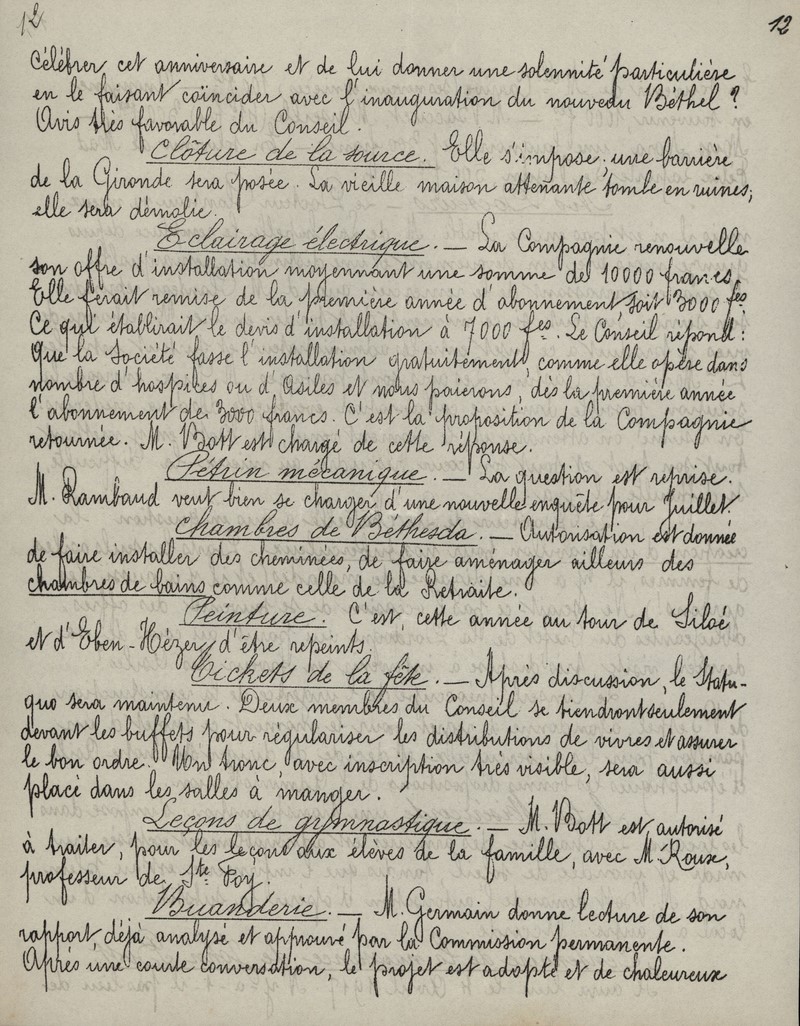 12
12
célébrer cet anniversaire et de lui donner une solennité particulière
en le faisant coïncider avec l'inauguration du nouveau Béthel ?
Avis très favorable du Conseil.
Clôture de la source. Elle s'impose ; une barrière
de la Gironde sera posée. La vieille maison attenante tombe en ruines ;
elle sera démolie.
Eclairage électrique. — La Compagnie renouvelle
son offre d'installation moyennant une somme de 10000 francs.
Elle ferait remise de la première année d'abonnement, soit 3000 fcs.
Ce qui établirait le devis d'installation à 7000 fcs. Le Conseil répond :
Que la Société fasse l'installation gratuitement, comme elle opère dans
nombre d'hospices ou d'Asiles et nous paierons, dès la première année
l'abonnement de 3000 francs. C'est la proposition de la Compagnie
retournée. M. Bott est chargé de cette réponse.
Pétrin mécanique. — La question est reprise.
M. Rambaud veut bien se charger d'une nouvelle enquête pour Juillet.
Chambres de Béthesda. — Autorisation est donnée
de faire installer des cheminées, de faire aménager ailleurs des
chambres de bains comme celle de la Retraite.
Peinture. C'est, cette année au tour de Siloé
et d'Eben-Hézer, d'être repeints.
Tickets de la fête. — Après discussion, le Statu-
quo sera maintenu. Deux membres du Conseil se tiendront seulement
devant les buffets pour régulariser les distributions de vivres et assurer
le bon ordre. Un tronc, avec inscription très visible, sera aussi
placé dans les salles à manger.
Leçons de gymnastique. — M. Bott est autorisé
à traiter, pour les leçons aux élèves de la famille, avec M. Roux,
professeur de Ste Foy.
Buanderie. — M. Germain donne lecture de son
rapport, déjà analysé et approuvé par la Commission permanente.
Après une courte conversation, le projet est adopté et de chaleureux